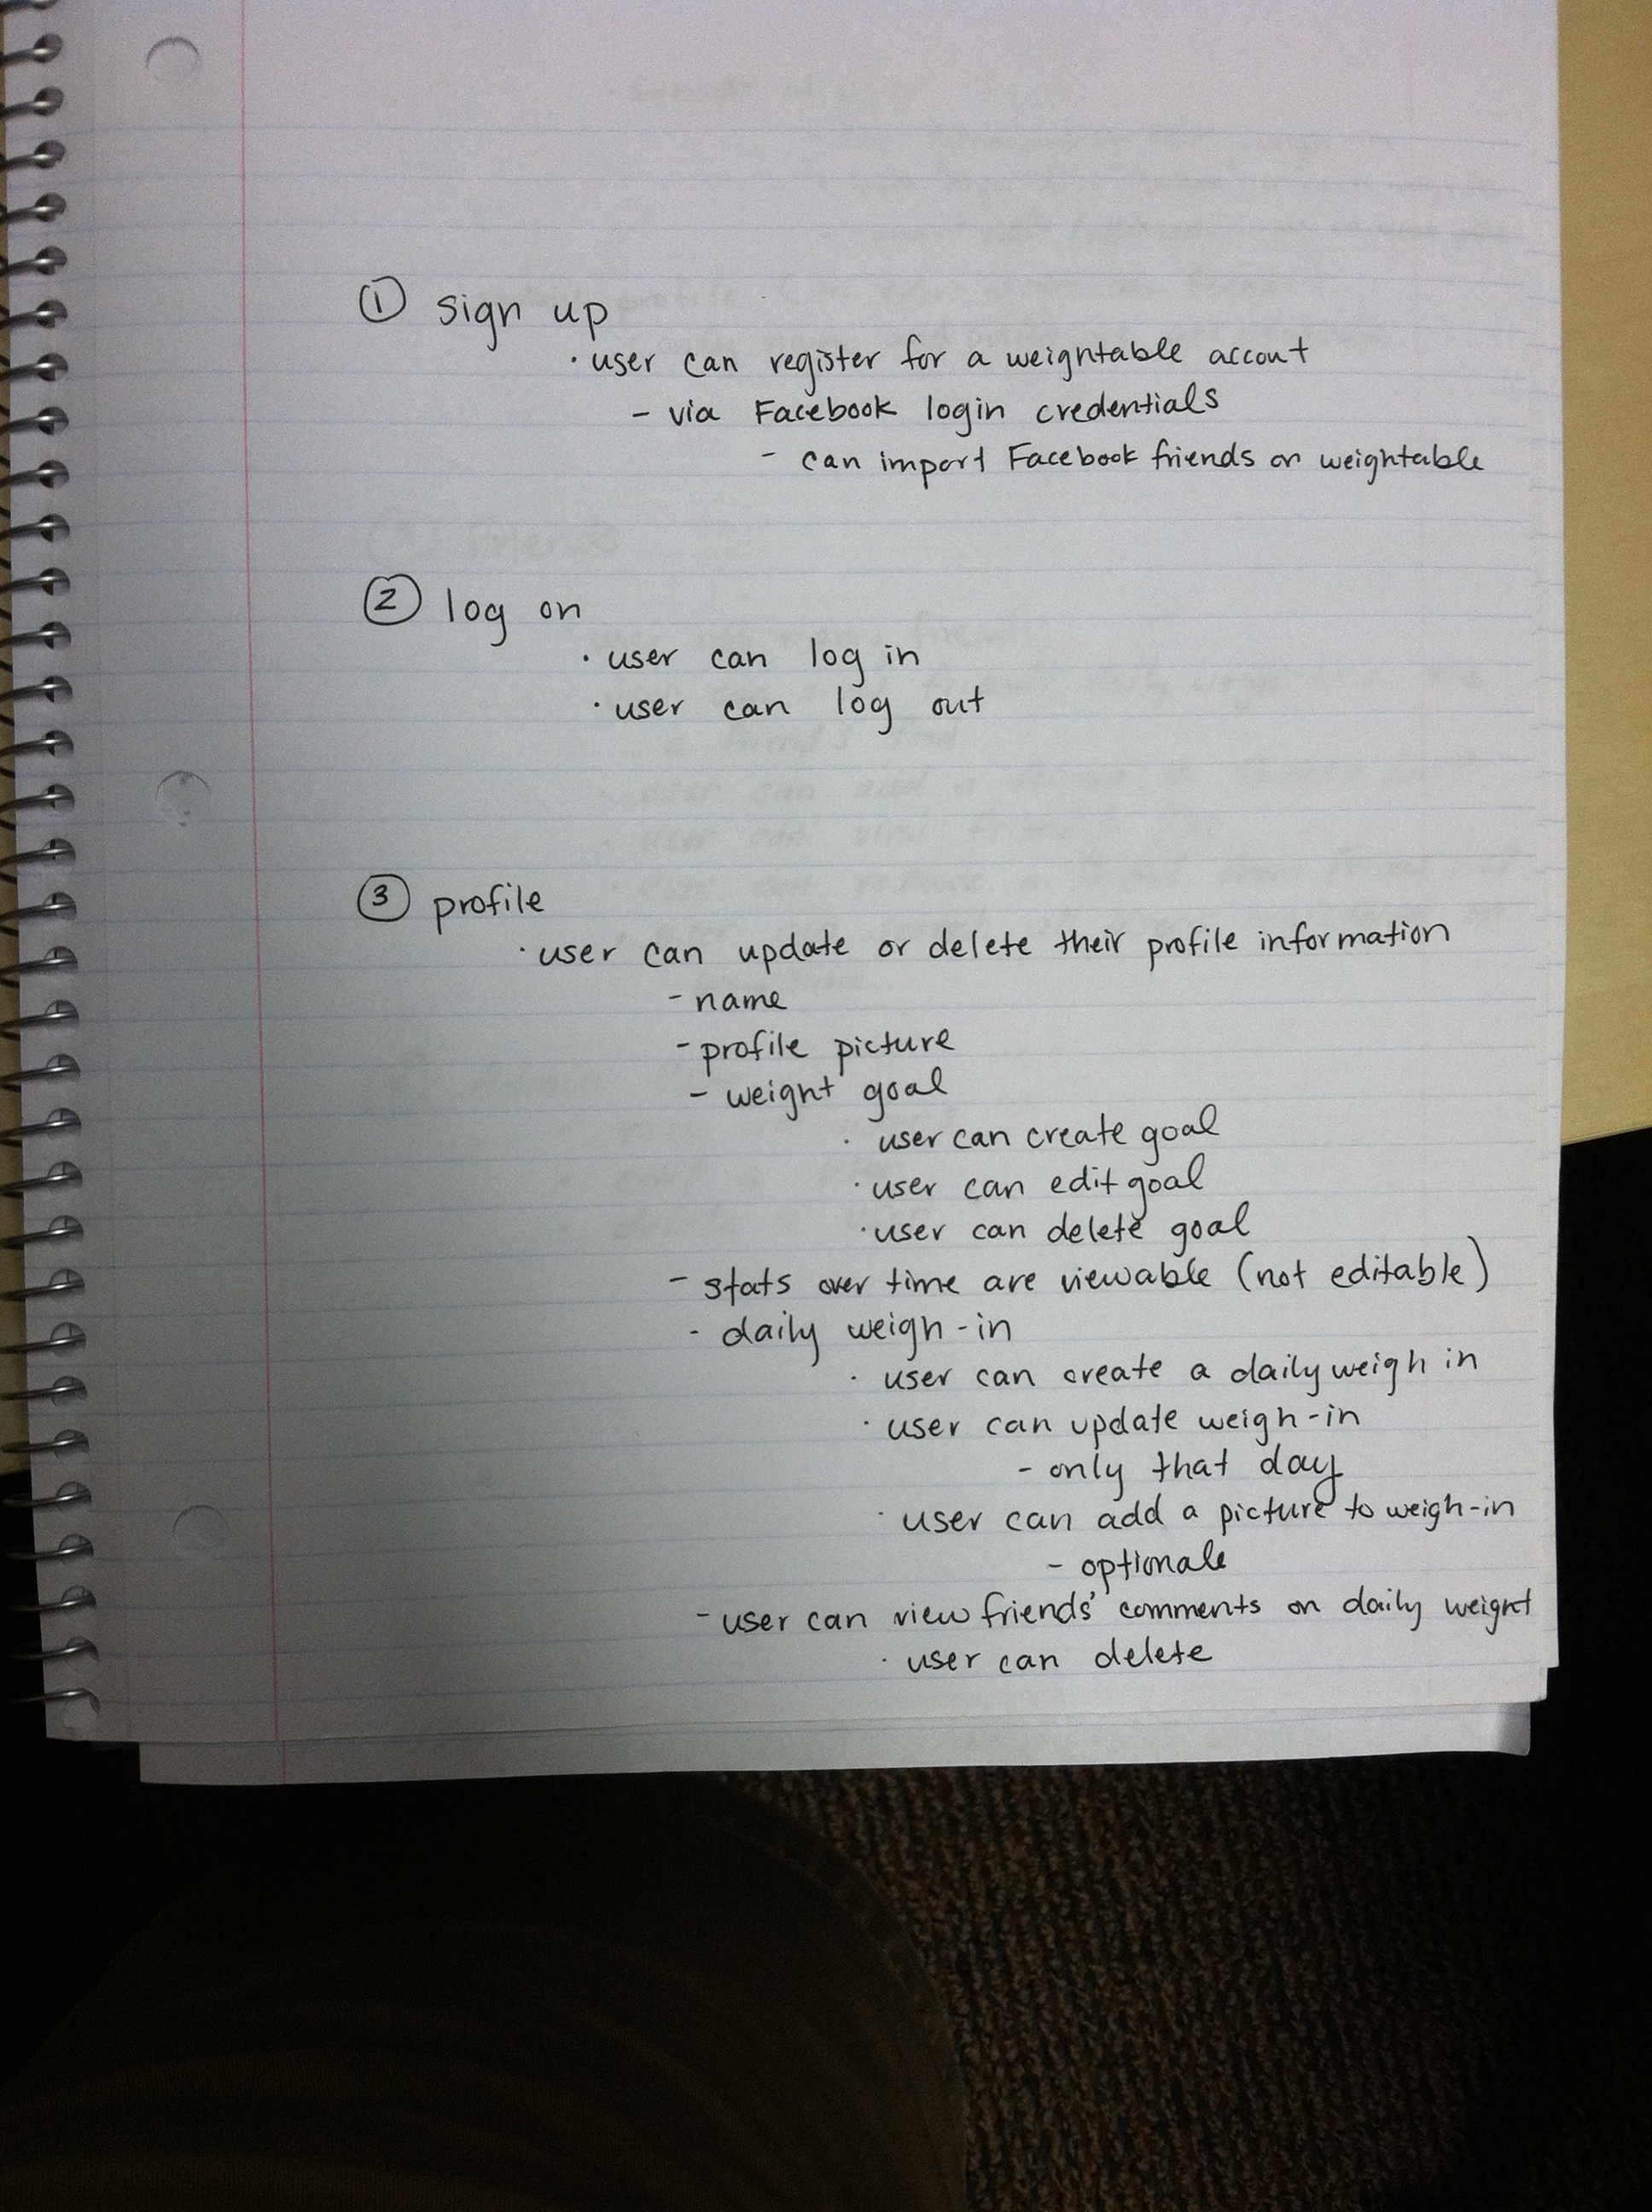 ① sign up
· user can register for a weightable accout
- via Facebook login credentials
- can import Facebook friends on weightable
② log on
· user can log in
· user can log out
③ profile
· user can update or delete their profile information
- name
- profile picture
- weight goal
· user can create goal
· user can edit goal
· user can delete goal
- stats over time are viewable (not editable)
- daily weigh-in
· user can create a daily weigh in
· user can update weigh-in
- only that day
· user can add a picture to weigh-in
- optionale
- user can view friends' comments on daily weight
· user can delete